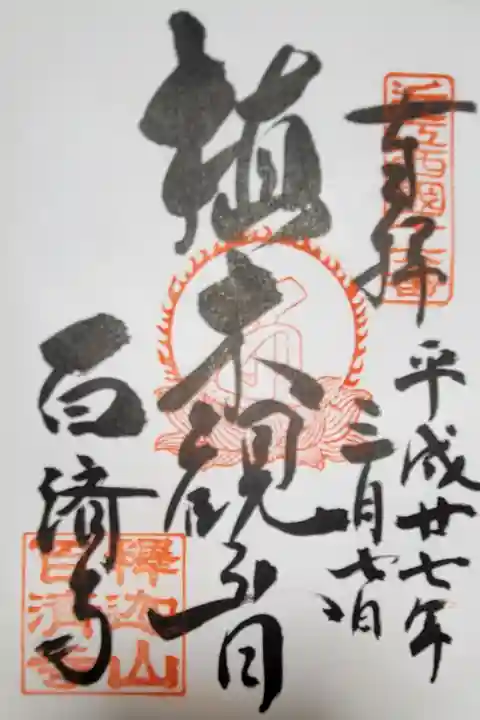 奉拝
近江西国十六番
平成廿七年
三月七日
植木観音
百済寺
釋迦山
百済寺